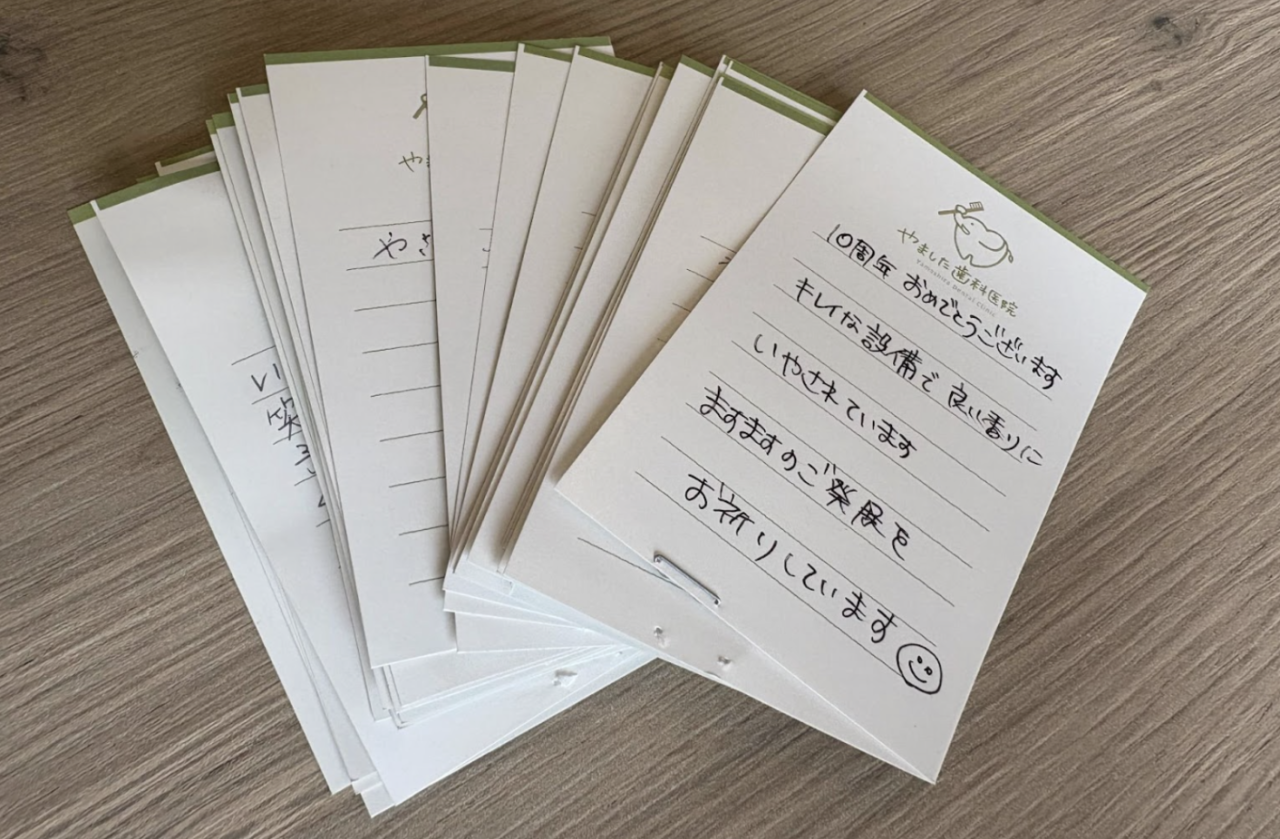 やました歯科医院
Yamashita Dental Clinic
10周年 おめでとうございます
キレイな設備で 良い香りに
いやされています
ますますのご発展を
お祈りしています
やさ
い
笑